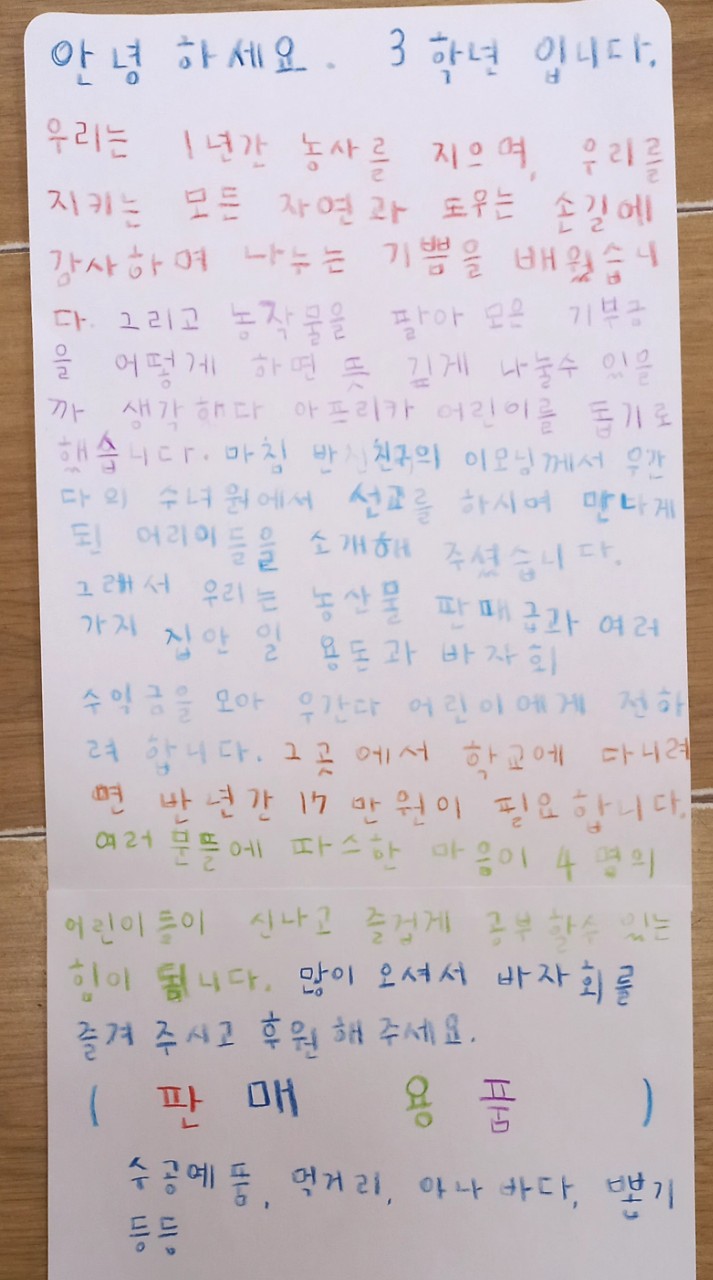 안녕 하세요. 3 학년 입니다.
우리는 1년간 농사를 지으며, 우리를
지키는 모든 자연과 도우는 손길에
감사하며 나누는 기쁨을 배웠습니
다. 그리고 농작물을 팔아 모은 기부금
을 어떻게 하면 뜻 깊게 나눌수 있을
까 생각하다 아프리카 어린이를 돕기로
했습니다. 마침 반 친구의 이모님께서 우간
다의 수녀원에서 선교를 하시며 만나게
된 어린이들을 소개해 주셨습니다.
그래서 우리는 농산물 판매금과 여러
가지 집안 일 용돈과 바자회
수익금을 모아 우간다 어린이에게 전하
려 합니다. 그곳에서 학교에 다니려
면 반년간 17만원이 필요합니다.
여러분들에 따스한 마음이 4명의
어린이들이 신나고 즐겁게 공부할수 있는
힘이 됩니다. 많이 오셔서 바자회를
즐겨 주시고 후원해 주세요.
( 판매 용품 )
수공예품, 먹거리, 아나바다, 뽑기
등등